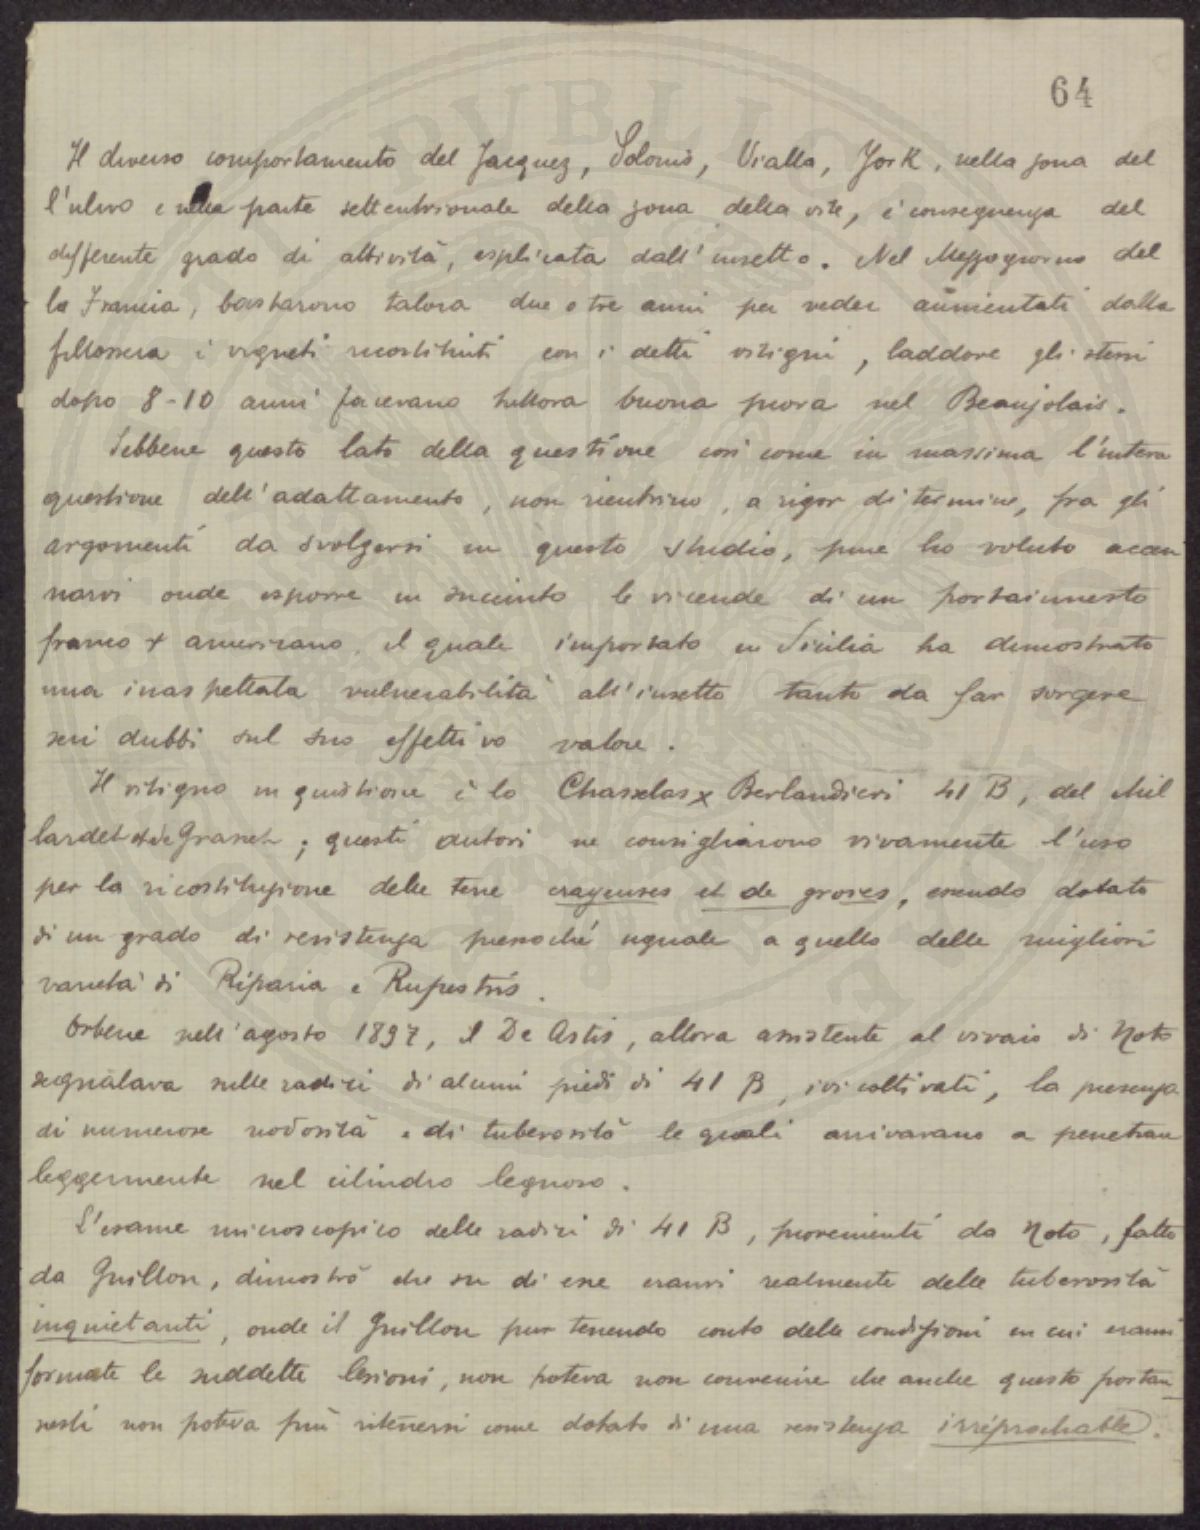 64
Il diverso comportamento del Jacquez, Solonis, Vialla, York, nella zona del
l'ulivo e nella parte settentrionale della zona della vite, è conseguenza del
differente grado di attività, esplicata dall'insetto. Nel Mezzogiorno del
la Francia, bastarono talora due o tre anni per veder annientati dalla
fillossera i vigneti ricostituiti con i detti vitigni, laddove gli stessi
dopo 8-10 anni facevano tuttora buona prova nel Beaujolais.
Sebbene questo lato della questione così come in massima l'intera
questione dell'adattamento, non rientrino, a rigor di termine, fra gli
argomenti da svolgersi in questo studio, pure ho voluto accen
narvi onde esporre in succinto le vicende di un portainnesto
franco × americano, il quale importato in Sicilia ha dimostrato
una inaspettata vulnerabilità all'insetto tanto da far sorgere
seri dubbi sul suo effettivo valore.
Il vitigno in quistione è lo Chasselas × Berlandieri 41 B, del Mil
lardet et de Grasset; questi autori ne consigliarono vivamente l'uso
per la ricostituzione delle terre crayeuses et de groies, essendo dotato
di un grado di resistenza pressoché uguale a quello delle migliori
varietà di Riparia e Rupestris.
Orbene nell'agosto 1897, il De Astis, allora assistente al vivaio di Noto
segnalava sulle radici di alcuni piedi di 41 B, ivi coltivati, la presenza
di numerose nodosità e di tuberosità le quali arrivavano a penetrare
leggermente nel cilindro legnoso.
L'esame microscopico delle radici di 41 B, provenienti da Noto, fatto
da Guillon, dimostrò che su di esse eranvi realmente delle tuberosità
inquietanti, onde il Guillon pur tenendo conto delle condizioni in cui eransi
formate le suddette lesioni, non poteva non convenire che anche questo portain-
nesti non poteva più ritenersi come dotato di una resistenza irréprochable.